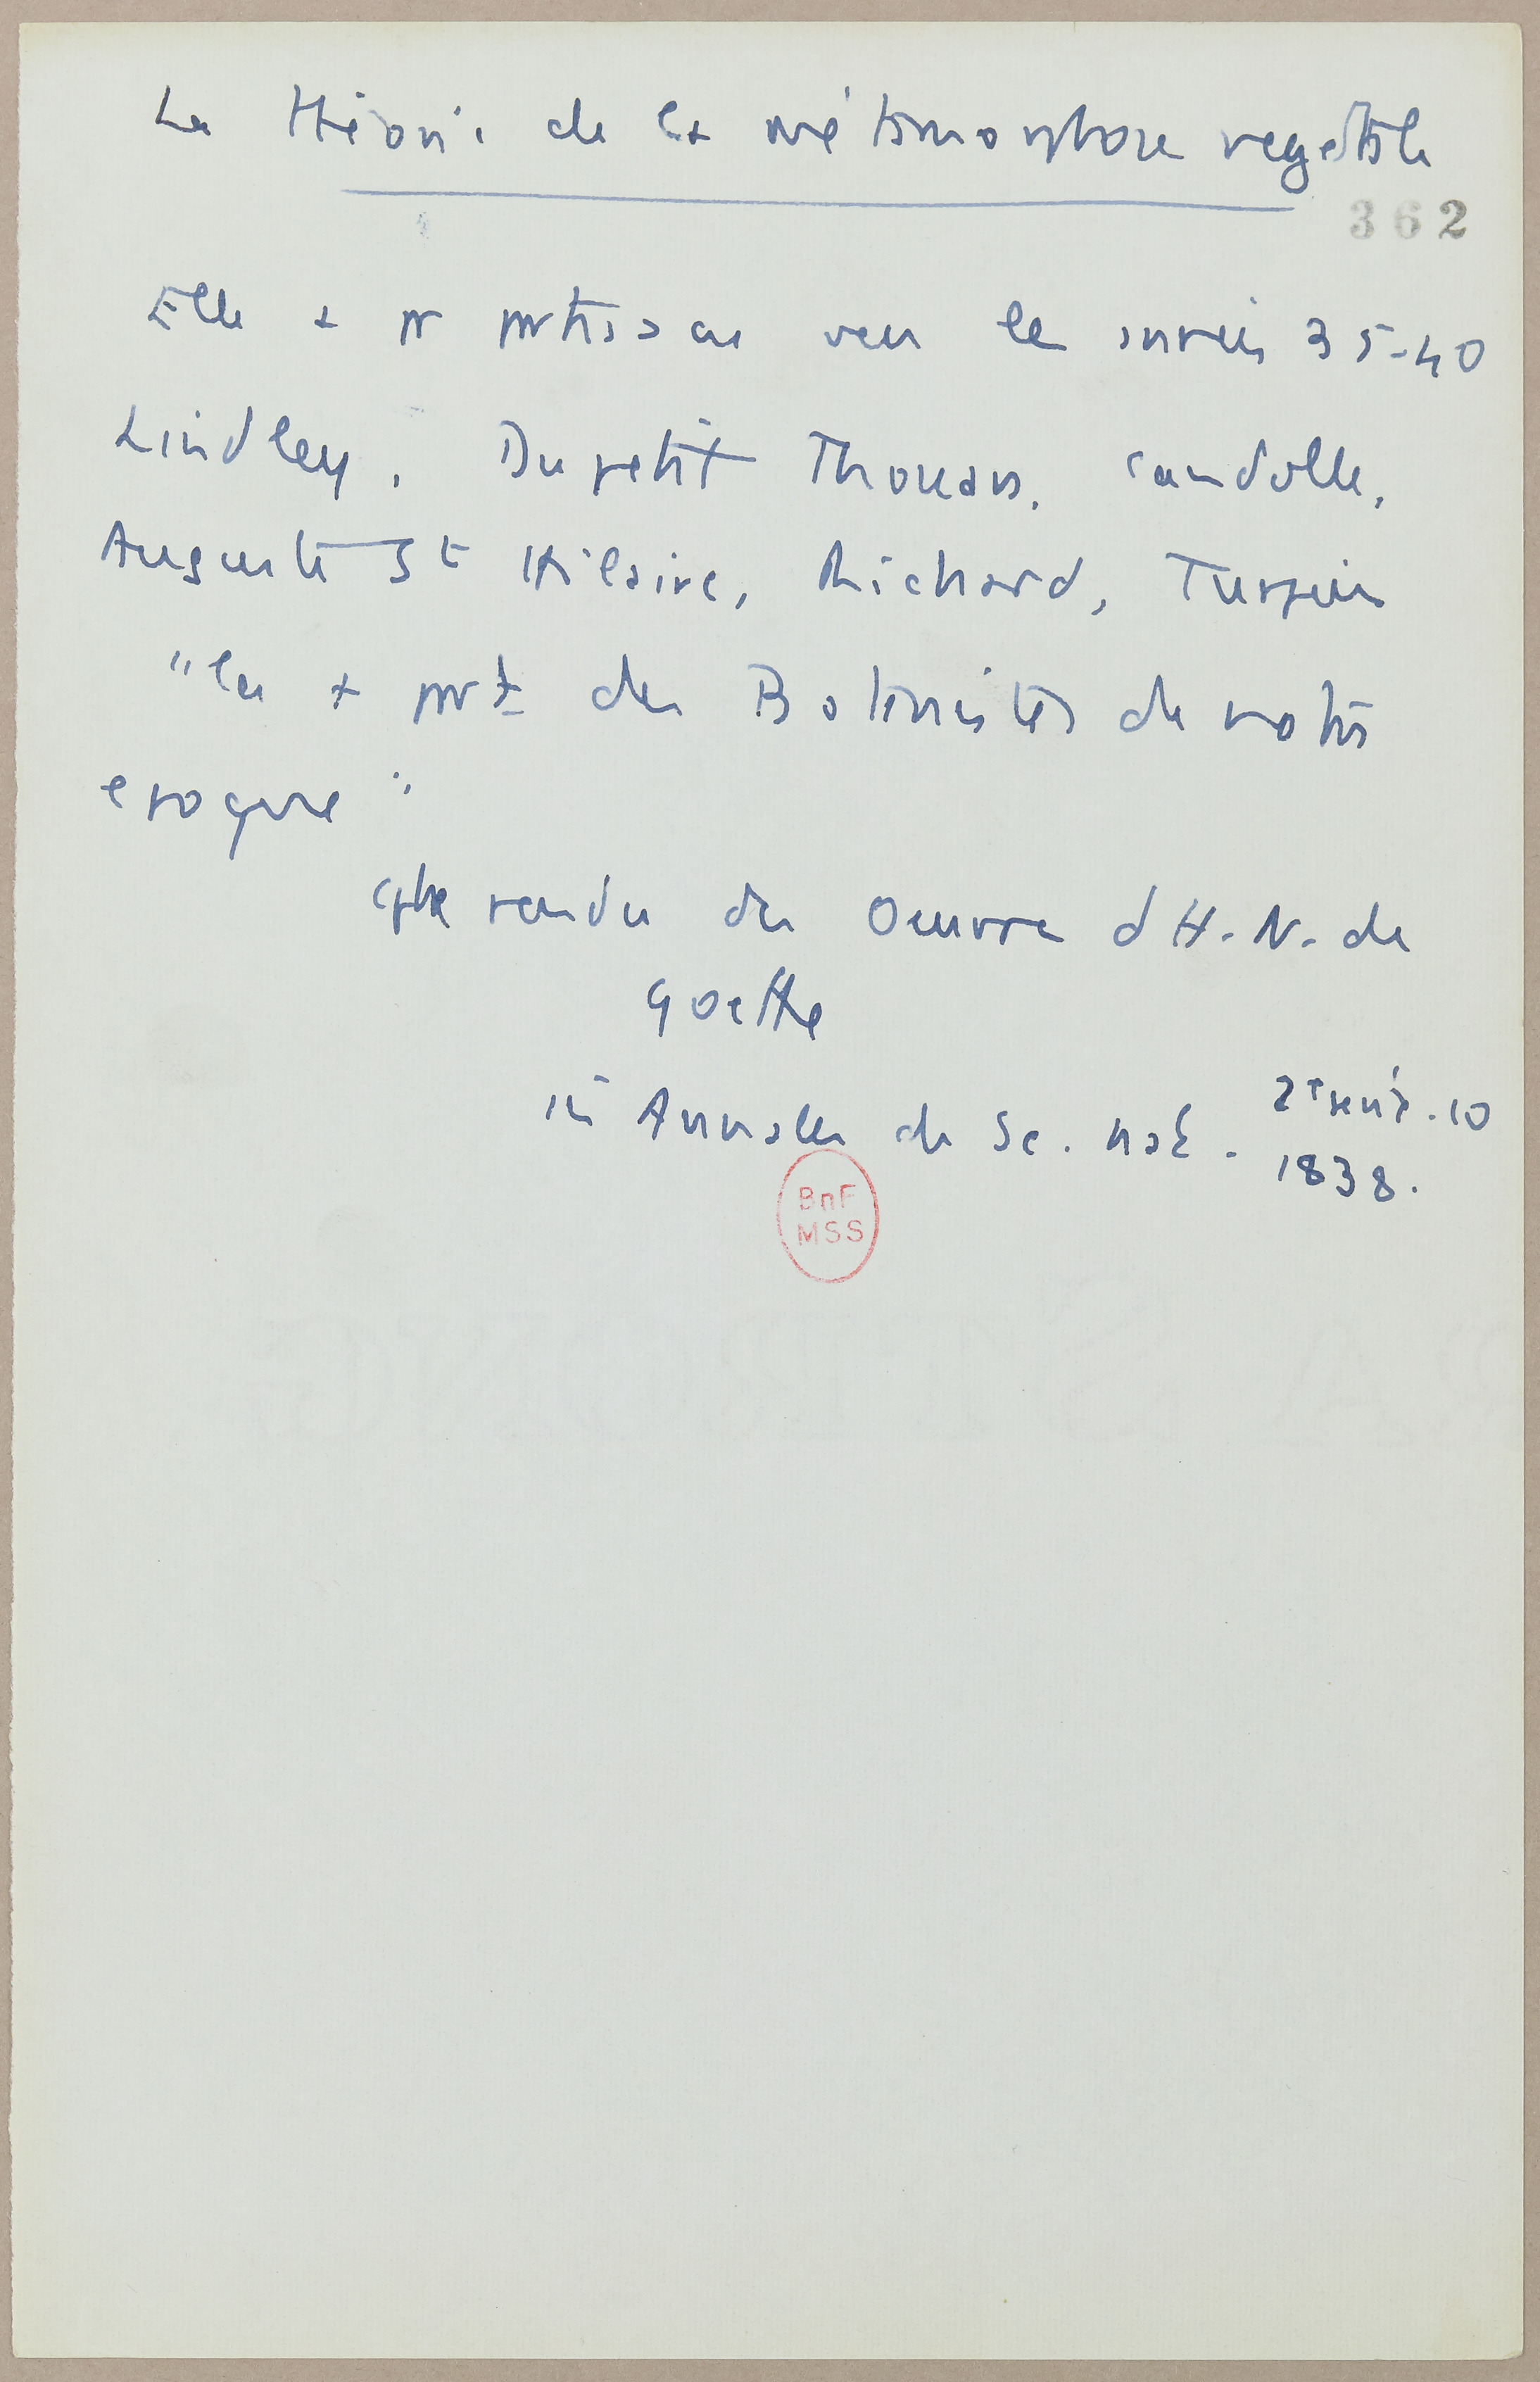 La théorie de la métamorphose végétale
362
Elle a pr partisans vers les années 35-40
Lindley, Du petit Thouars, Candolle,
Auguste St Hilaire, Richard, Turpin
"la + part des Botanistes de notre
epoque"
Cpte rendu des Oeuvres d'H. N. de
Goethe
in Annales de Sc. nat. 2e série. 10
1838.
BnF
MSS